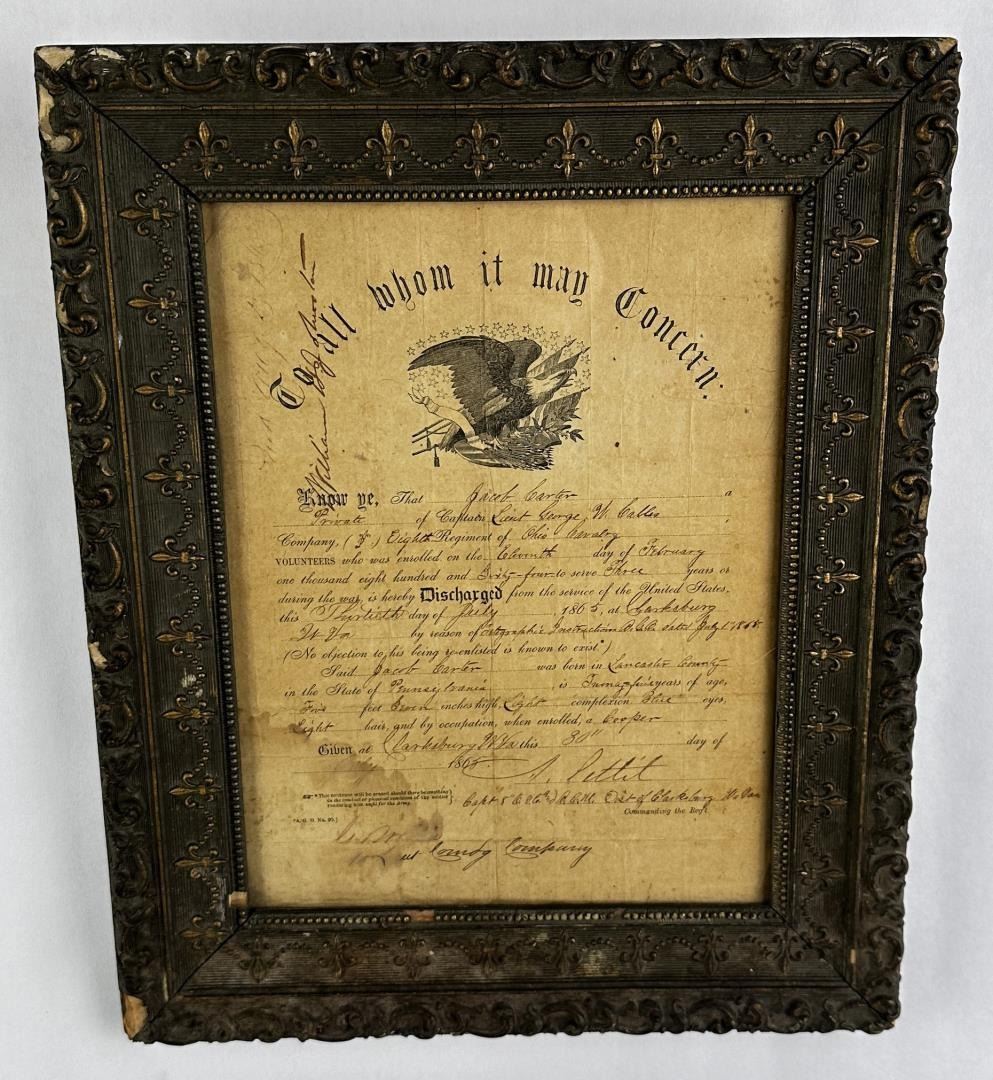 To all whom it may Concern:
Know ye, That Jacob Carter a
Private of Captain Lieut George W.
Company, ( ) Eighth Regiment of Ohio Cavalry
VOLUNTEERS who was enrolled on the Eleventh day of February
one thousand eight hundred and Sixty-four to serve Three years or
during the war, is hereby Discharged from the service of the United States,
this Thirtieth day of July, 1865, at Clarksburg
W Va by reason of Instructions dated July 1" 1865
(No objection to his being re-enlisted is known to exist.*)
Said Jacob Carter was born in Lancaster County
in the State of Pennsylvania, is Twenty five years of age,
Five feet Seven inches high, Light complexion Blue eyes,
Light hair, and by occupation, when enrolled, a Cooper
Given at Clarksburg W Va this 30" day of
1865
*This sentence will be erased should there be anything
in the conduct or physical condition of the soldier
rendering him unfit for the Army.
[A. G. O. No. 99.]
Capt Dist of Clarksburg W Va
Commanding the Reg't
Comdg Company
William